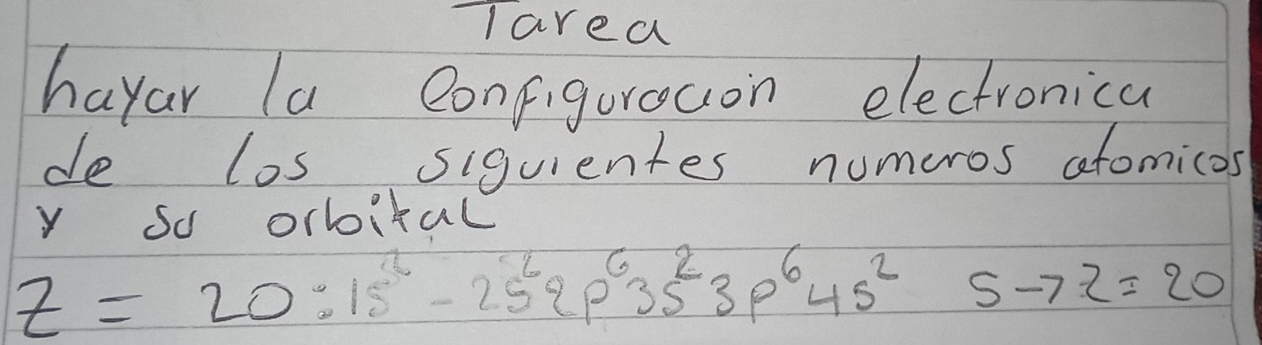 Tarea
hayar la Configuracion electronica
de los siguientes numeros atomicos
y su orbital
Z = 20:1s² - 2s²2p⁶3s²3p⁶4s² S→Z=20